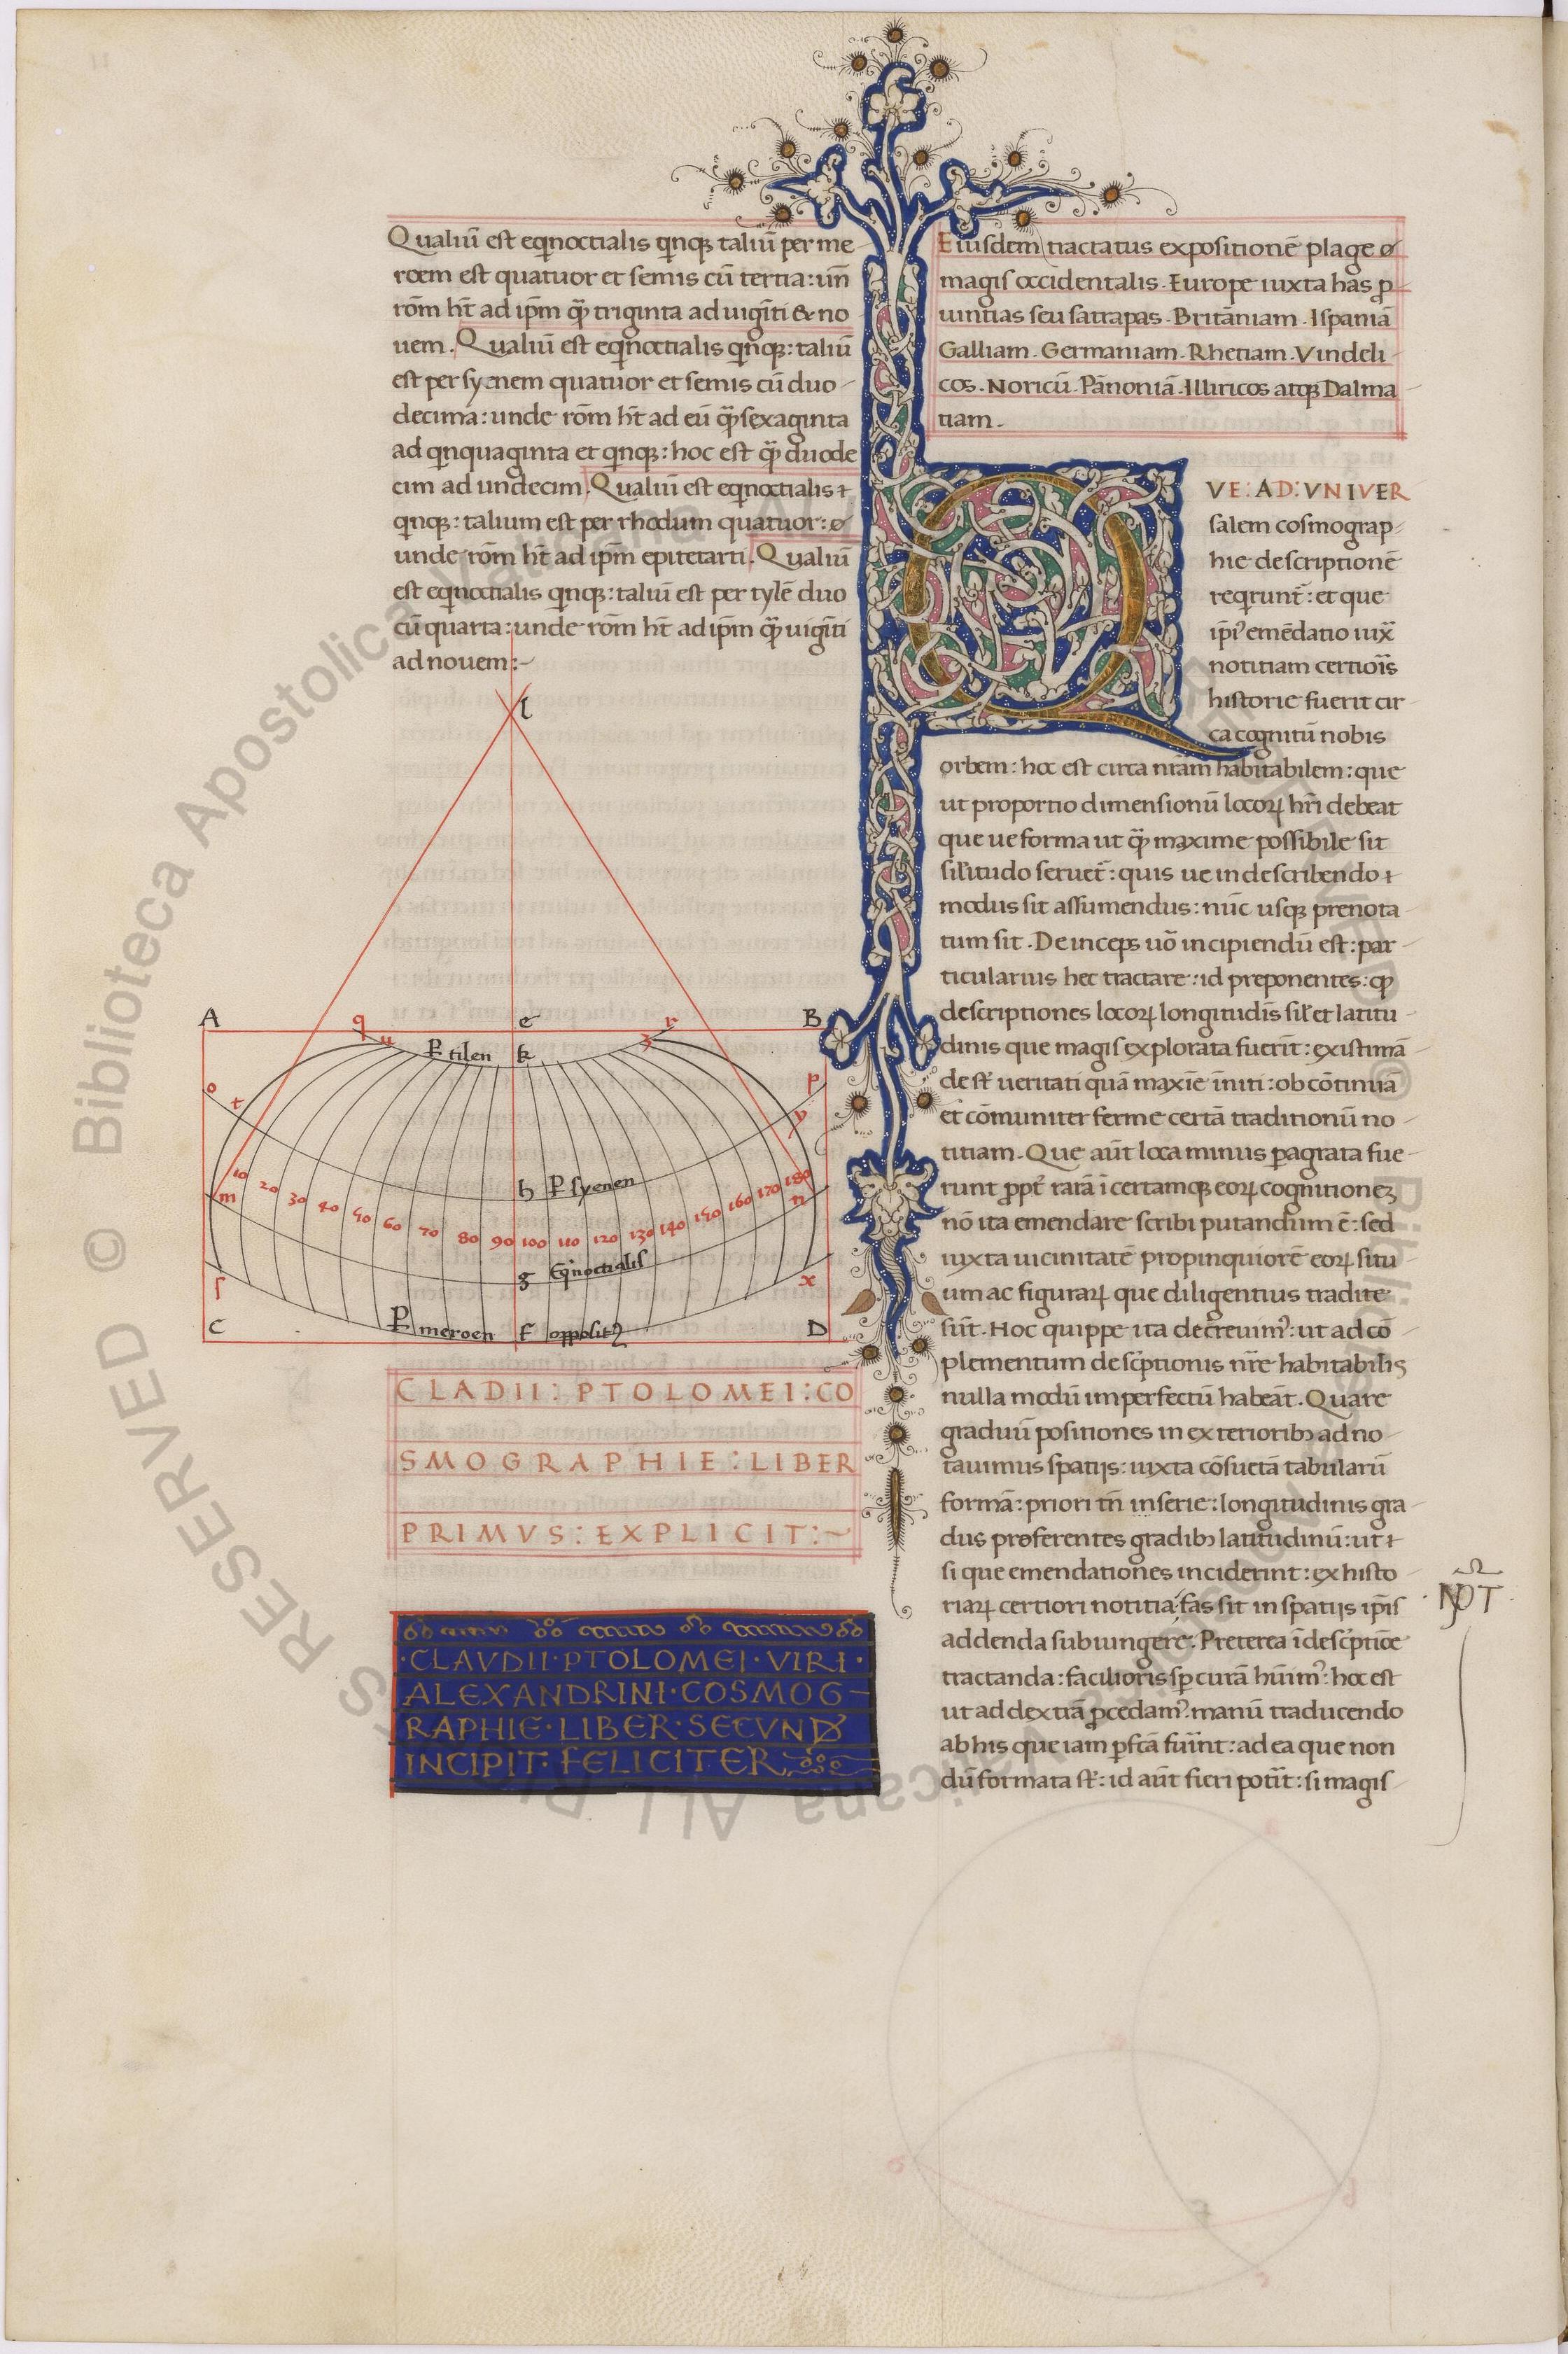 Qualiū est eqͥnoctialis qͥnqꝫ taliū per me
roem est quatuor et semis cū tertia: un̄
rōm ht̄ ad ip̄m qꝫ̄ triginta ad uigīti & no
uem. Qualiū est eqͥnoctialis qͥnqꝫ: taliū
est per syenem quatuor et semis cū duo-
decima: unde rōm ht̄ ad eū qꝫ̄ sexaginta
ad qͥnquaginta et qͥnqꝫ: hoc est qꝫ̄ duode
cim ad undecim. Qualiū est eqͥnoctialis
qͥnqꝫ: talium est per rhodum quatuor:
unde rōm ht̄ ad ip̄m epitetarti. Qualiū
est eqͥnoctialis qͥnqꝫ: taliū est per tylē duo
cū quarta: unde rōm ht̄ ad ip̄m qꝫ̄ uigīti
ad nouem:-
l
A q e r B
u ꝑ tilen k z
o t p y
10 20 30 40 50 60 70 80 90 100 110 120 130 140 150 160 170 180
m h ꝑ syenen n
g Eqͥnoctialis
s x
C ꝑ meroen f oppositꝰ D
CLADII: PTOLOMEI: CO
SMOGRAPHIE: LIBER
PRIMVS: EXPLICIT:~
·CLAVDII·PTOLOMEI·VIRI·
ALEXANDRINI·COSMOG-
RAPHIE·LIBER·SECVNDꝰ
INCIPIT: FELICITER
Eiusdem tractatus expositionē plage
magis occidentalis. Europe iuxta has ꝓ-
uintias seu satrapas. Britāniam. Ispaniā
Galliam. Germaniam. Rhetiam. Vindeli-
cos. Noricū. Pānoniā. Illiricos atqꝫ Dalma-
tiam.
QVE: AD: VNIVER
salem cosmograp-
hie descriptionē
reqͥrunt̄: et que
ip̄iꝰ emēdatio iux̄
notitiam certiōis
historie fuerit cir-
ca cognitū nobis
orbem: hoc est circa nr̄am habitabilem: que
ut proportio dimensionū locoꝝ hr̄i debeat
que ue forma ut qꝫ̄ maxime possibile sit
sil̄itudo seruet̄: quis ue in describendo
modus sit assumendus: nūc usqꝫ prenota-
tum sit. Deinceps uō incipiendū est: par-
ticularius hec tractare: id preponentes: ꝙ
descriptiones locoꝝ longitudis̄ sil̄ et latitu-
dinis que magis explorata fuerīt: existimā-
de st̄ ueritati quā maxīe īniti: ob cōtinuā
et cōmuniter ferme certā traditionū no-
titiam. Que aūt loca minus ꝑagrata fue-
runt ꝓpt̄ rarā ī certamqꝫ eoꝝ cognitionem
nō ita emendare scribi putandum ē: sed
iuxta uicinitatē propinquiorē eoꝝ situ-
um ac figuraꝝ que diligentius tradite
sūt. Hoc quippe ita decreuimꝰ: ut ad cō-
plementum desc̄ptionis nr̄e habitabilis
nulla modū imperfectū habeāt. Quare
graduū positiones in exterioribꝫ ad no-
tauimus spatijs: iuxta cōsuetā tabularū
formā: priori tn̄ in serie: longitudinis gra-
dus proferentes gradibꝫ latitudinū: ut
si que emendationes inciderint: ex histo-
riaꝝ certiori notitia, fas sit in spatijs ip̄is
addenda subiungere. Preterea ī desc̄ptiōe
tractanda: facilioris sꝑ curā hūimꝰ: hoc est
ut ad dextrā ꝓcedamꝰ. manū traducendo
ab his que iam ꝑfc̄a fuīnt: ad ea que non
dū formata st̄: id aūt fieri potīt: si magis
NOT
© Biblioteca Apostolica Vaticana ALL RIGHTS RESERVED